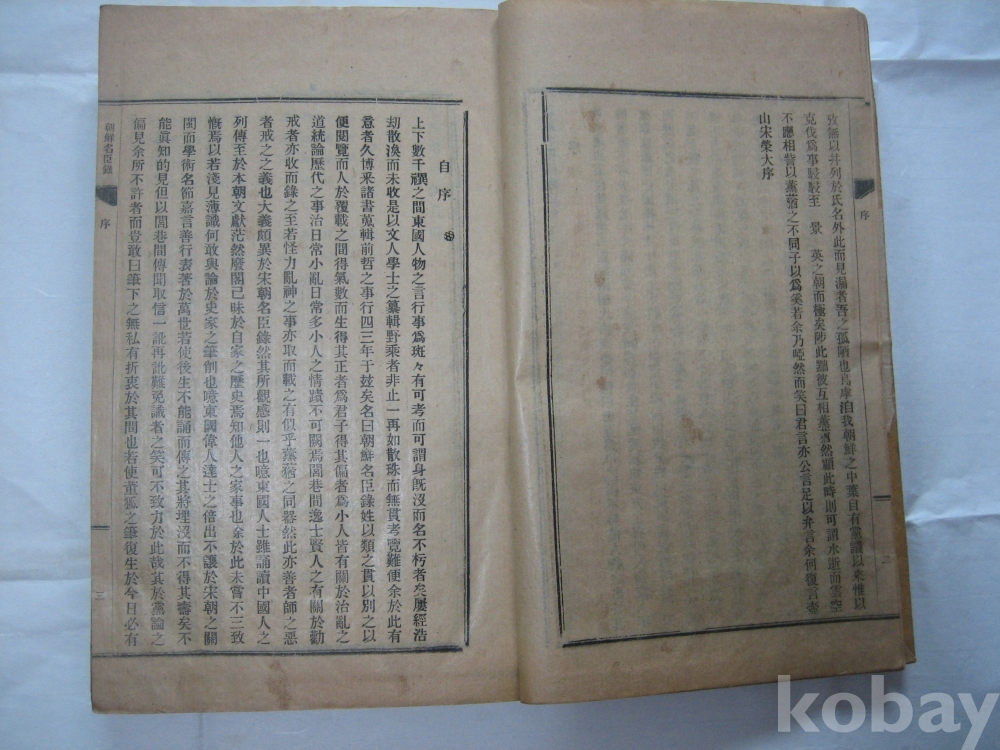 序
攷無以幷列於氏名外此而見漏者吾之孤陋也烏虖洎我朝鮮之中葉自有黨議以來惟以
克伐爲事駸駸至 景 英之朝而極矣陟此黜彼互相薰蕕然顧此時則可謂水逝而雲空
不應相訾以薰蕕之不同子以爲奚若余乃啞然而笑曰君言亦公言足以弁言余何復言壺
山宋榮大序
二
自序
上下數千禩之間東國人物之言行事爲班々有可考而可謂身旣沒而名不朽者矣屢經浩
刧散渙而未收是以文人學士之纂輯野乘者非止一再如散珠而無貫考覽難便余於此有
意者久博釆諸書蒐輯前哲之事行四三年于玆矣名曰朝鮮名臣錄姓以類之貫以別之以
便閱覽而人於覆載之間得氣數而生得其正者爲君子得其偏者爲小人皆有關於治亂之
道統論歷代之事治日常小亂日常多小人之情蹟不可闕焉閭巷間逸士賢人之有關於勸
戒者亦收而錄之至若怪力亂神之事亦取而載之有似乎薰蕕之同器然此亦善者師之惡
者戒之之義也大義頗異於宋朝名臣錄然其所觀感則一也噫東國人士雖誦讀中國人之
列傳至於本朝文獻茫然廢閣己昧於自家之歷史焉知他人之家事也余於此未嘗不三致
慨焉以若淺見薄識何敢與論於史家之筆削也噫東國偉人達士之倍出不讓於宋朝之關
閩而學術名節嘉言善行表著於萬世若使後生不能誦而傳之其將埋沒而不得其審矣不
能眞知的見但以閭巷間傳聞取信一訛再訛難免識者之笑可不致力於此哉其於黨論之
偏見余所不許者而豈敢曰筆下之無私有折衷於其間也若使董狐之筆復生於今日必有
朝鮮名臣錄
序
三
kobay